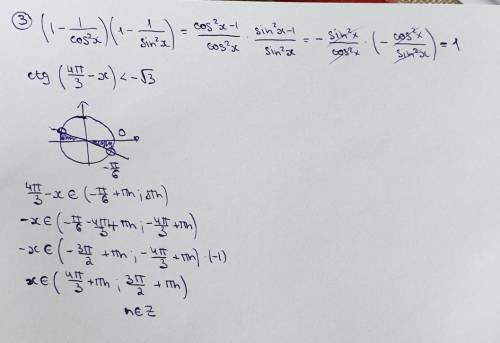 ③ (1 - 1/cos²x)(1 - 1/sin²x) = (cos²x-1)/cos²x · (sin²x-1)/sin²x = - sin²x/cos²x · (- cos²x/sin²x) = 1
ctg (4π/3 - x) < -√3
0
-π/6
4π/3 - x ∈ (-π/6 + πn ; πn)
-x ∈ (-π/6 - 4π/3 + πn ; -4π/3 + πn)
-x ∈ (-3π/2 + πn ; -4π/3 + πn) ·(-1)
x ∈ (4π/3 + πn ; 3π/2 + πn)
n ∈ Z